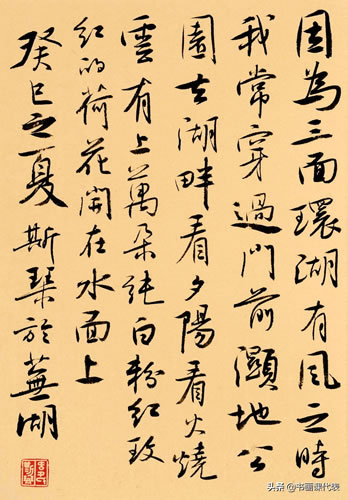 因為三面環湖有風之時
我常穿過門前灦地公
園去湖畔看夕陽看火燒
雲有上萬朵純白粉紅玫
紅的荷花開在水面上
癸巳之夏斯琹於蕪湖
头条 @书画课代表